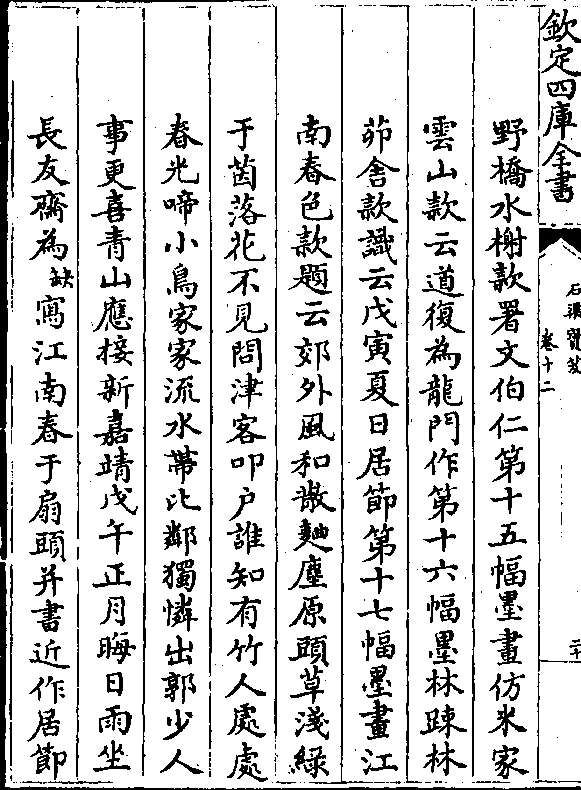 欽定四庫全書
石渠寶笈
卷十二
野橋水榭款署文伯仁第十五幅墨畫仿米家
雲山款云道復為龍門作第十六幅墨林踈林
茆舍款識云戊寅夏日居節第十七幅墨畫江
南春色款題云郊外風和散麯塵原頭草淺綠
于茵落花不見問津客叩户誰知有竹人處處
春光啼小鳥家家流水帶比鄰獨憐出郭少人
事更喜青山應接新嘉靖戊午正月晦日雨坐
長友齋為缺寫江南春于扇頭并書近作居節